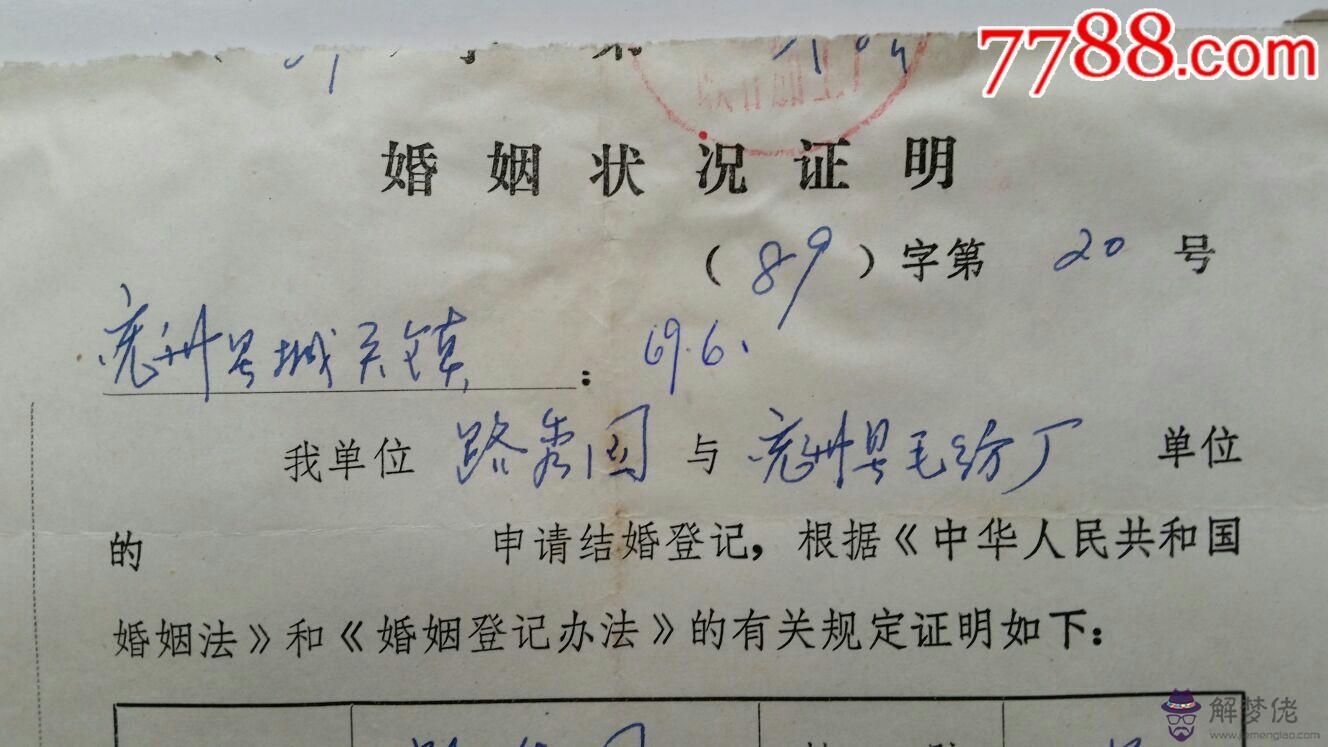 7788.com
婚姻状况证明
（89）字第 20 号
兖州县城关镇： 69.6.
我单位 路秀国 与 兖州县毛纺厂 单位
的 申请结婚登记，根据《中华人民共和国
婚姻法》和《婚姻登记办法》的有关规定证明如下：
解梦佬
jiemenglao.com